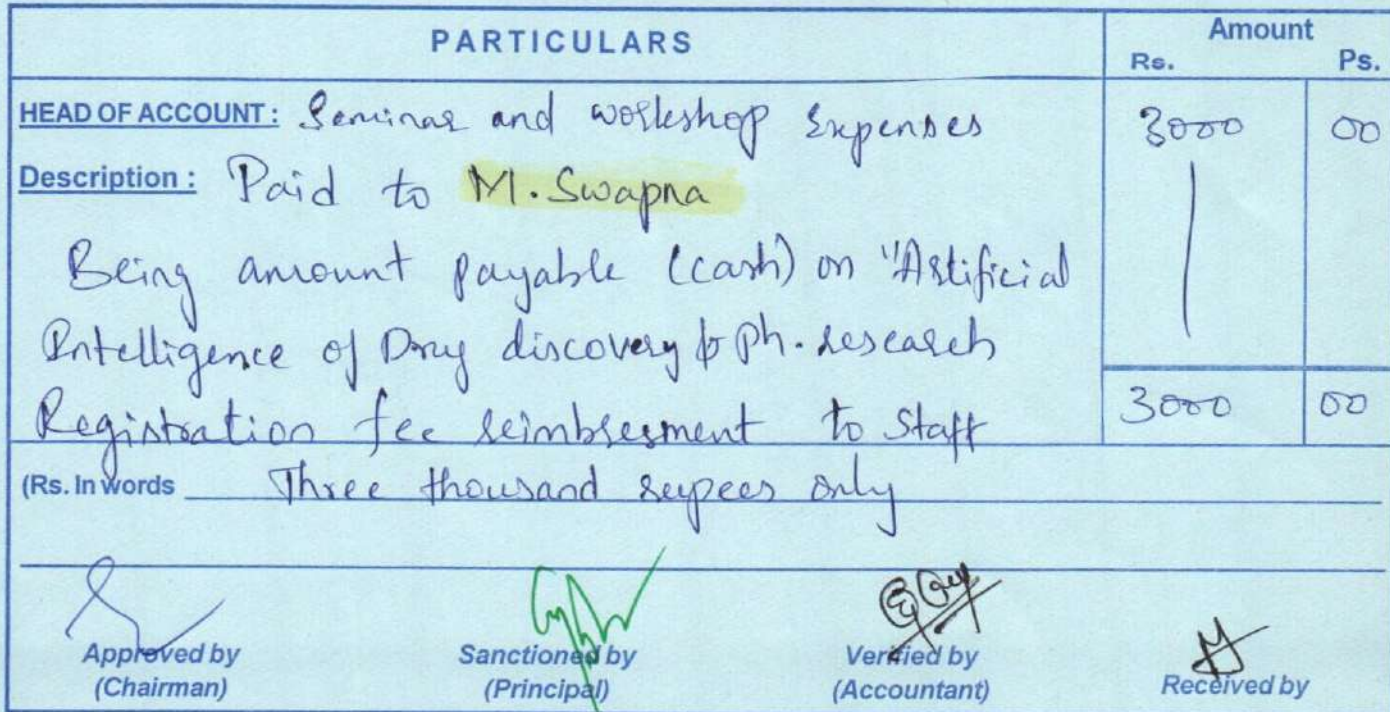 PARTICULARS Amount
Rs. Ps.
HEAD OF ACCOUNT : Seminar and workshop Expenses 3000 00
Description : Paid to M. Swapna
Being amount payable (cash) on "Artificial
Intelligence of Drug discovery & Ph. research
Registration fee reimbresment to Staff 3000 00
(Rs. In words Three thousand rupees only
Approved by Sanctioned by Verified by Received by
(Chairman) (Principal) (Accountant)